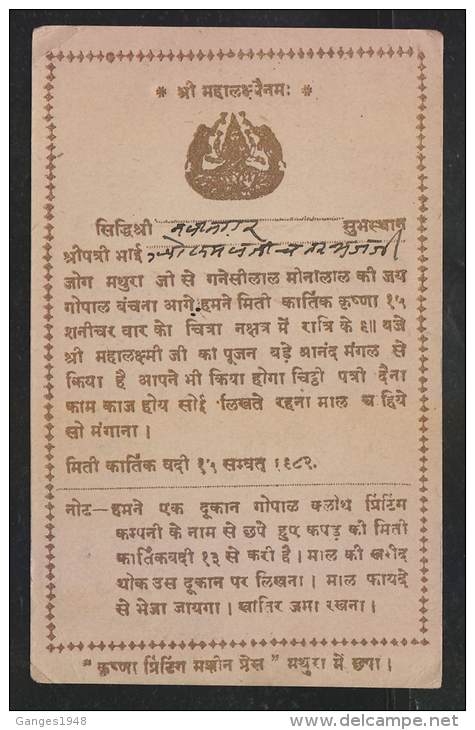 * श्री महालक्ष्मैनमः *
सिद्धिश्री नयानगर सुभस्थान
श्रीपत्री भाई
जोग मथुरा जी से गनेसीलाल मोनालाल की जय
गोपाल बंचना आगे हमने मिती कार्तिक कृष्णा १५
शनीचर वार को चित्रा नक्षत्र में रात्रि के ९॥ बजे
श्री महालक्ष्मी जी का पूजन बड़े आनंद मंगल से
किया है आपने भी किया होगा चिट्ठी पत्री देना
काम काज होय सोई लिखते रहना माल च हिये
सो मंगाना ।
मिती कार्तिक वदी १५ सम्वत् १९८२.
नोट—हमने एक दूकान गोपाल क्लौथ प्रिंटिंग
कम्पनी के नाम से छपे हुए कपड़ की मिती
कार्तिकवदी १३ से करी है । माल की खरीद
थोक उस दूकान पर लिखना । माल फायदे
से भेजा जायगा । खातिर जमा रखना ।
"कृष्णा प्रिंटिंग मशीन प्रेस" मथुरा में छपा ।
Ganges1948
www.delcampe.net